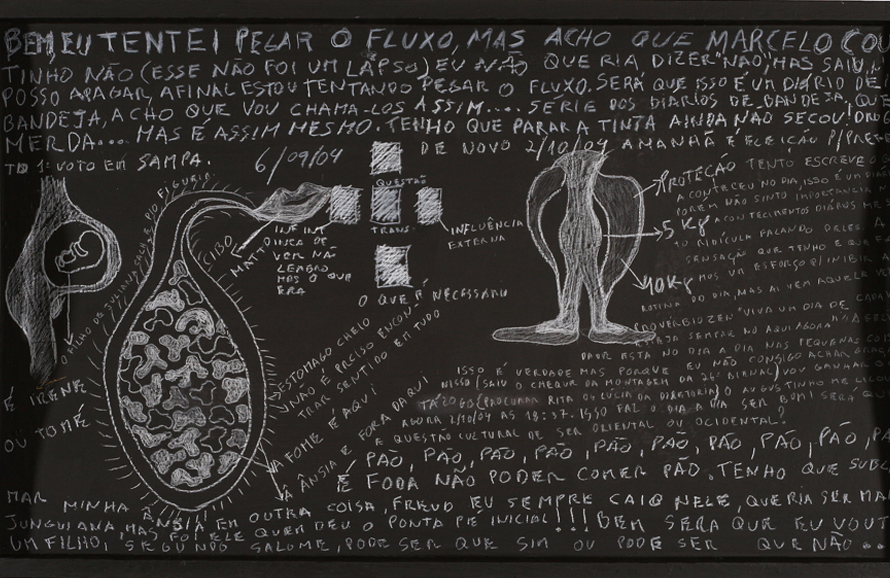 BEM, EU TENTEI PEGAR O FLUXO, MAS ACHO QUE MARCELO COU
TINHO NÃO (ESSE NÃO FOI UM LAPSO) EU NÃO QUERIA DIZER "NÃO", MAS SAIU, N
POSSO APAGAR, AFINAL ESTOU TENTANDO PEGAR O FLUXO. SERÁ QUE ISSO É UM DIÁRIO DE
BANDEJA, ACHO QUE VOU CHAMA-LOS ASSIM.... SERIE DOS DIARIOS DE BANDEJA, QUE
MERDA.... MAS É ASSIM MESMO. TENHO QUE PARAR A TINTA AINDA NÃO SECOU!
DE NOVO 2/10/04 AMANHÃ É ELEIÇÃO P/PREFE
TO 1º VOTO EM SAMPA. 6/09/04
O FILHO DE JULIANA
É IRENE
OU TOMÉ
CIBO
MATT
QUESTÃO
TRANS
INFLUÊNCIA
EXTERNA
DE
VER NA
MAS O QUE
ERA
O QUE É NECESSARIO
ESTOMAGO CHEIO
NÃO É PRECISO ENCON
TRAR SENTIDO EM TUDO
A FOME É AQUI
A ÂNSIA É FORA DAQUI
PROTEÇÃO
5 Kg
10 Kg
TENTO ESCREVE O
ACONTECEU NO DIA, ISSO É UM
POREM NÃO SINTO IMPORTANCIA
ACONTECIMENTOS DIÁRIOS ME
RIDÍCULA FALANDO DELES. A
SENSAÇÃO QUE TENHO É QUE
MOS UM ESFORÇO P/INIBIR A
ROTINA DO DIA, MAS AI VEM AQUELE V
PROVERBIO ZEN "VIVA UM DIA DE CADA
SEMPRE NO AQUI AGORA"
ESTA NO DIA A DIA NAS PEQUENAS COIS
ISSO É VERDADE MAS PORQUE EU NÃO CONSIGO ACHAR GRAÇA
NISSO (SAIU O CHEQUE DA MONTAGEM DA 26ª BIENAL) VOU GANHAR
(PROCURAR RITA OU LÚCIA DA DIRETORIA) O AUGUSTINHO ME LIGOU
AGORA 2/10/04 AS 18:37. ISSO FAZ O DIA A DIA SER BOM! SERÁ QU
A QUESTÃO CULTURAL DE SER ORIENTAL OU OCIDENTAL?
PÃO, PÃO, PÃO, PÃO, PÃO, PÃO, PÃO, PÃO, PÃO, P
É FODA NÃO PODER COMER PÃO. TENHO QUE SUBLI
MAR MINHA ÂNSIA EM OUTRA COISA, FREUD EU SEMPRE CAIO NELE, QUERIA SER MA
JUNGUIANA MAS FOI ELE QUEM DEU O PONTA PIE INICIAL!!! BEM SERA QUE EU VOU T
UM FILHO, SEGUNDO SALOME, PODE SER QUE SIM OU PODE SER QUE NÃO...